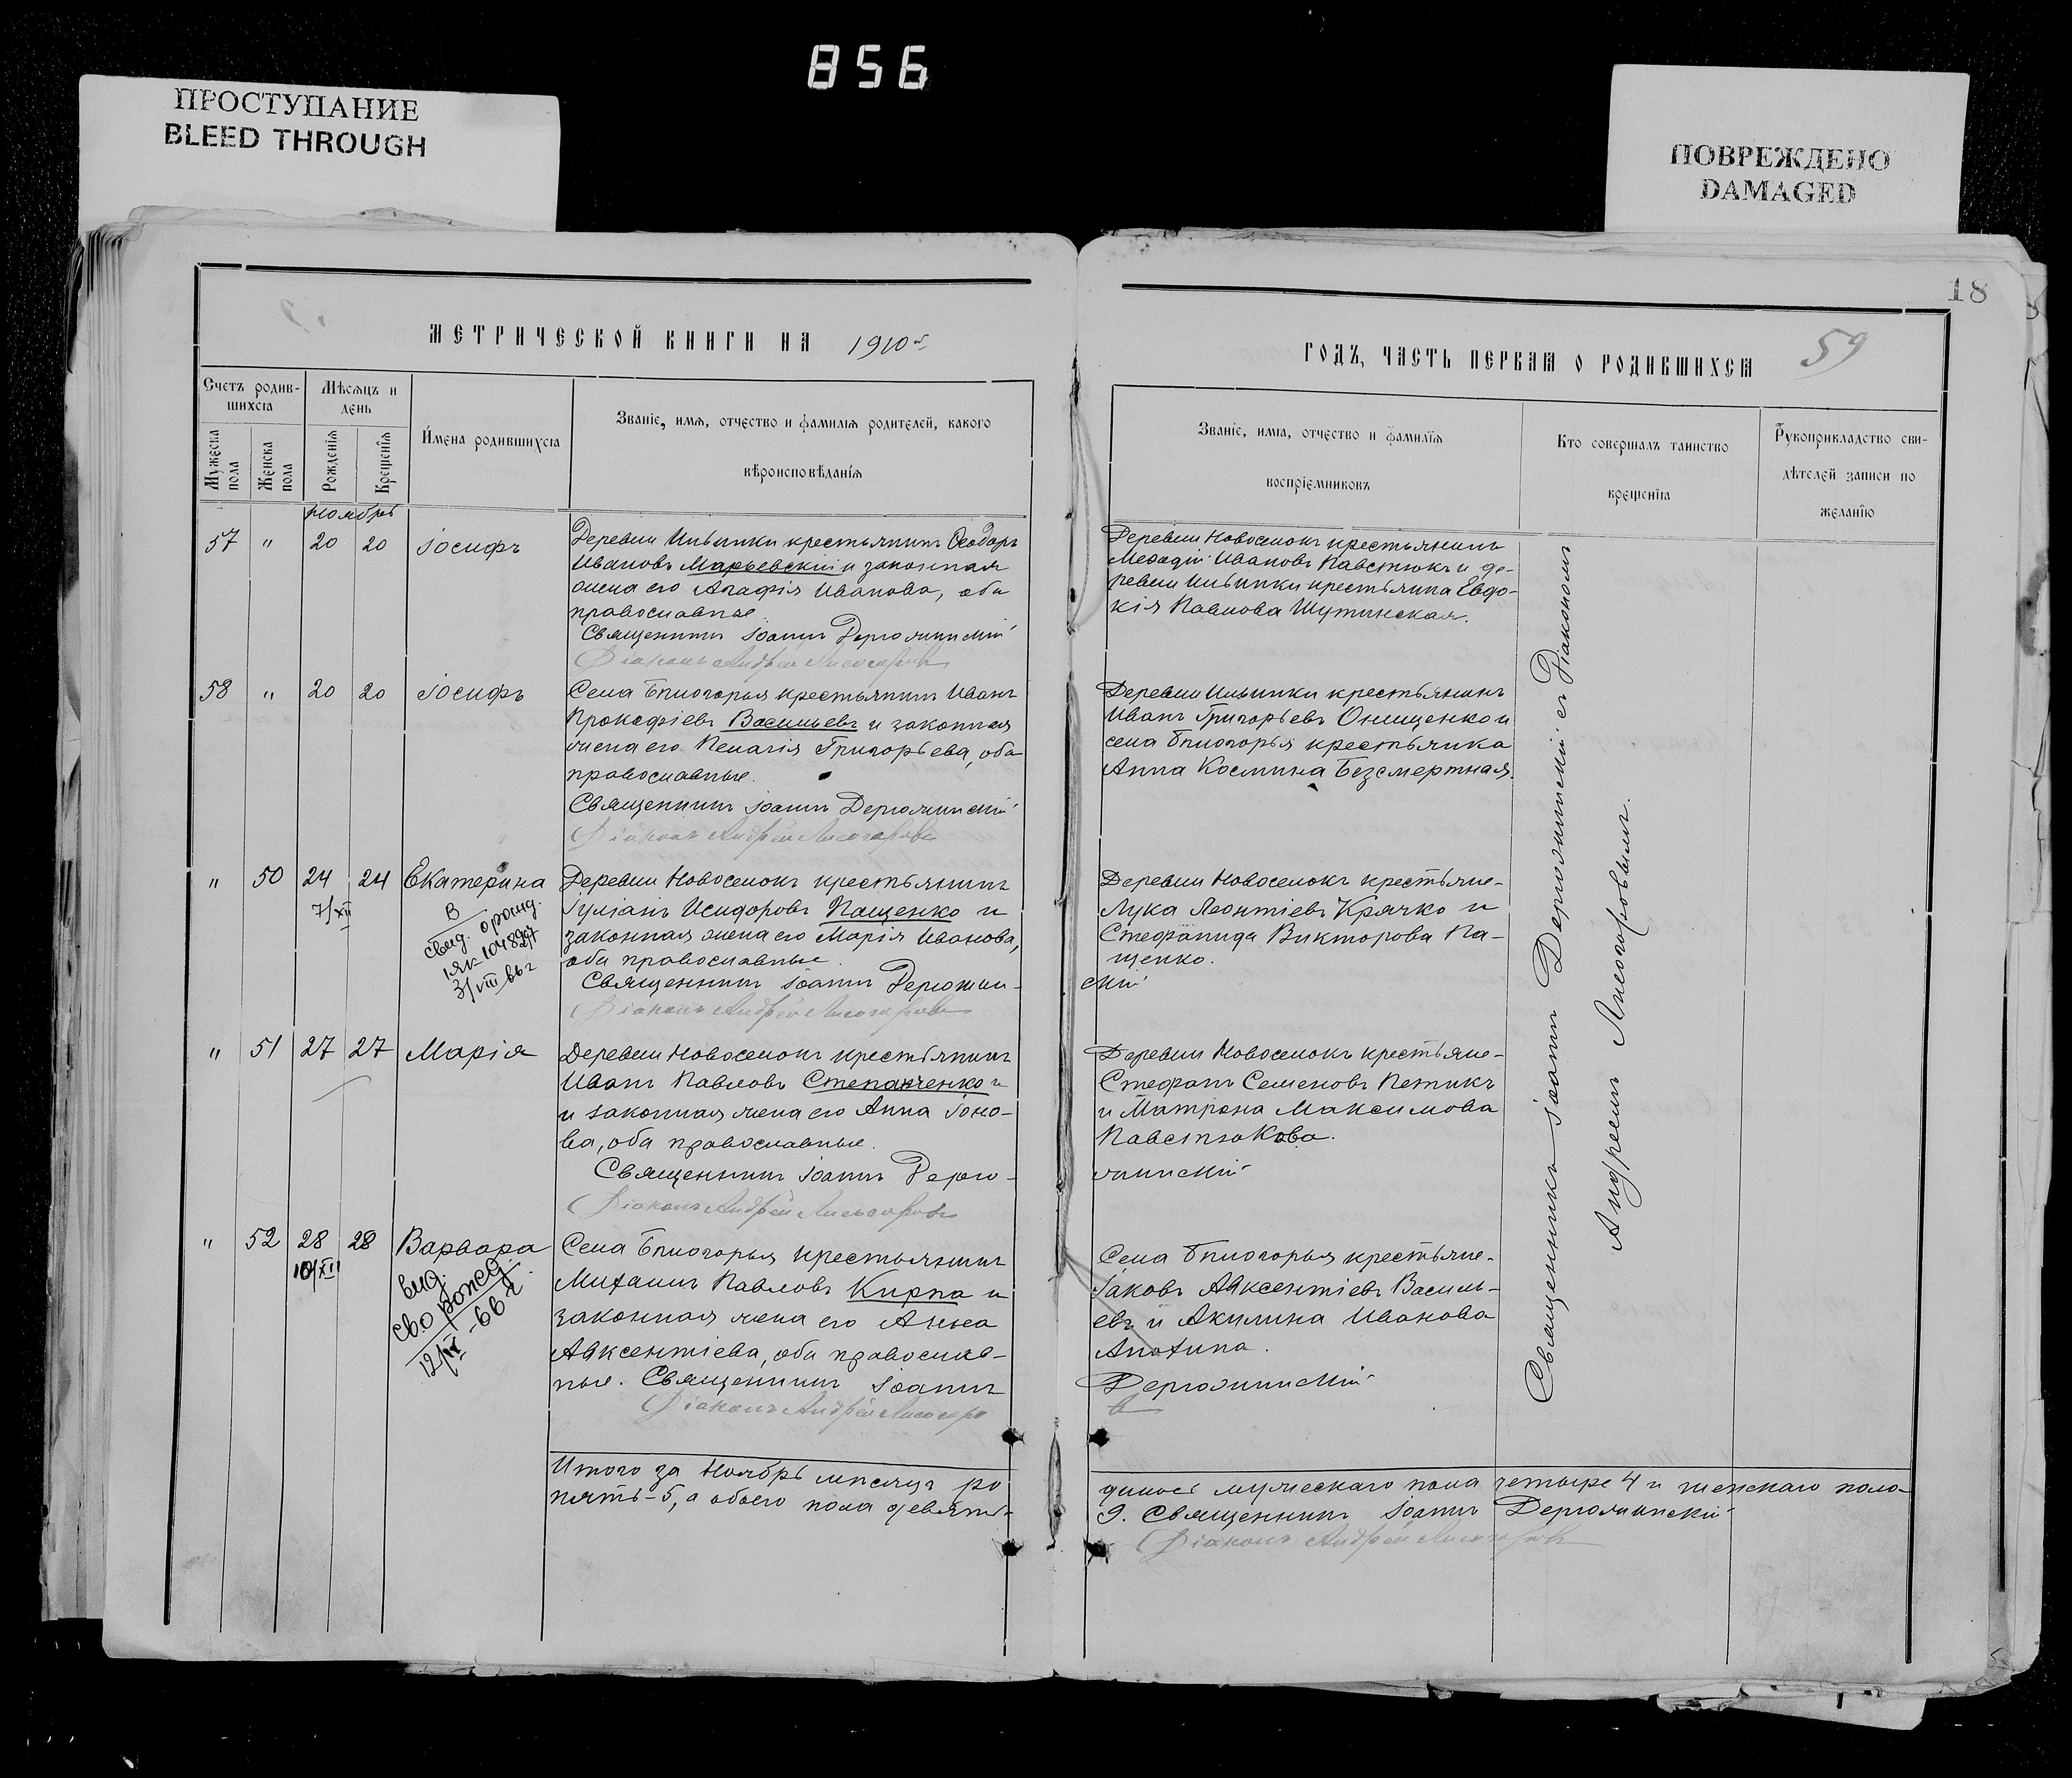 856
ПРОСТУПАНИЕ
BLEED THROUGH
ПОВРЕЖДЕНО
DAMAGED
18
59
МЕТРИЧЕСКОЙ КНИГИ НА 1910 г.
ГОДЪ, ЧАСТЬ ПЕРВАЯ О РОДИВШИХСЯ
Счетъ родив-
шихся
Мѣсяцъ и
день
Имена родившихся
Званіе, имя, отчество и фамилія родителей, какого
вѣроисповѣданія
Мужеска
пола
Женска
пола
Рожденія
Крещенія
Званіе, имя, отчество и фамилія
воспріемниковъ
Кто совершалъ таинство
крещенія
Рукоприкладство сви-
дѣтелей записи по
желанію
Ноябрь
57 " 20 20 Іосифъ
Деревни Ильинки крестьянинъ Ѳеодоръ
Ивановъ Марьевскій и законная
жена его Агафія Иванова, оба
православные
Священникъ Іоаннъ
Діаконъ Андрей Лисогоровъ
Деревни Новоселокъ крестьянинъ
Меѳодій Ивановъ Павстюкъ и де-
ревни Ильинки крестьянка Евдо-
кія Павлова Шутинская.
58 " 20 20 Іосифъ
Села крестьянинъ Иванъ
Прокофіевъ Васильевъ и законная
жена его Пелагія Григорьева, оба
православные.
Священникъ Іоаннъ
Діаконъ Андрей Лисогоровъ
Деревни Ильинки крестьянинъ
Иванъ Григорьевъ Онищенко и
села крестьянка
Анна Космина Безсмертная.
" 50 24 24 Екатерина
7/XII
В
свид. о рожд.
3/VIII
Деревни Новоселокъ крестьянинъ
Іуліанъ Исидоровъ Пащенко и
законная жена его Марія Иванова,
оба православные.
Священникъ Іоаннъ
Діаконъ Андрей Лисогоровъ
Деревни Новоселокъ крестьяне-
Лука Леонтіевъ Крячко и
Стефанида Викторова Па-
щенко.
скій
" 51 27 27 Марія
Деревни Новоселокъ крестьянинъ
Иванъ Павловъ Степанченко и
и законная жена его Анна Іоно-
ва, оба православные.
Священникъ Іоаннъ
Діаконъ Андрей Лисогоровъ
Деревни Новоселокъ крестьяне-
Стефанъ Семеновъ Петикъ
и Матрона Максимова
Павстюкова.
" 52 28 28 Варвара
10/XII
вид.
св.о рожд.
12/IX-66 г.
Села крестьянинъ
Михаилъ Павловъ Кирпа и
законная жена его Анна
Авксентіева, оба православ-
ные. Священникъ Іоаннъ
Діаконъ Андрей Лисогоро
Села крестьяне-
Іаковъ Авксентіевъ Василь-
евъ и Акилина Иванова
въ
Священникъ Іоаннъ съ Діакономъ
Андреемъ Лисогоровымъ.
Итого за Ноябрь мѣсяцъ ро
дилось мужескаго пола четыре 4 и женскаго пола
пять-5, а обоего пола девять-
9. Священникъ Іоаннъ
Діаконъ Андрей Лисогоровъ